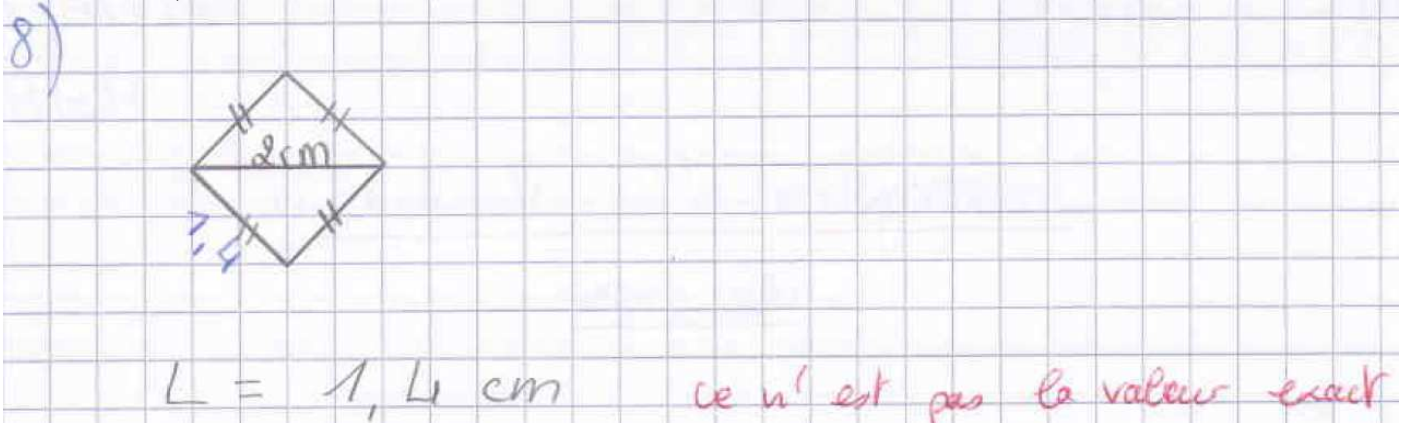 8)
2cm
1,4
L = 1,4 cm ce n'est pas la valeur exact